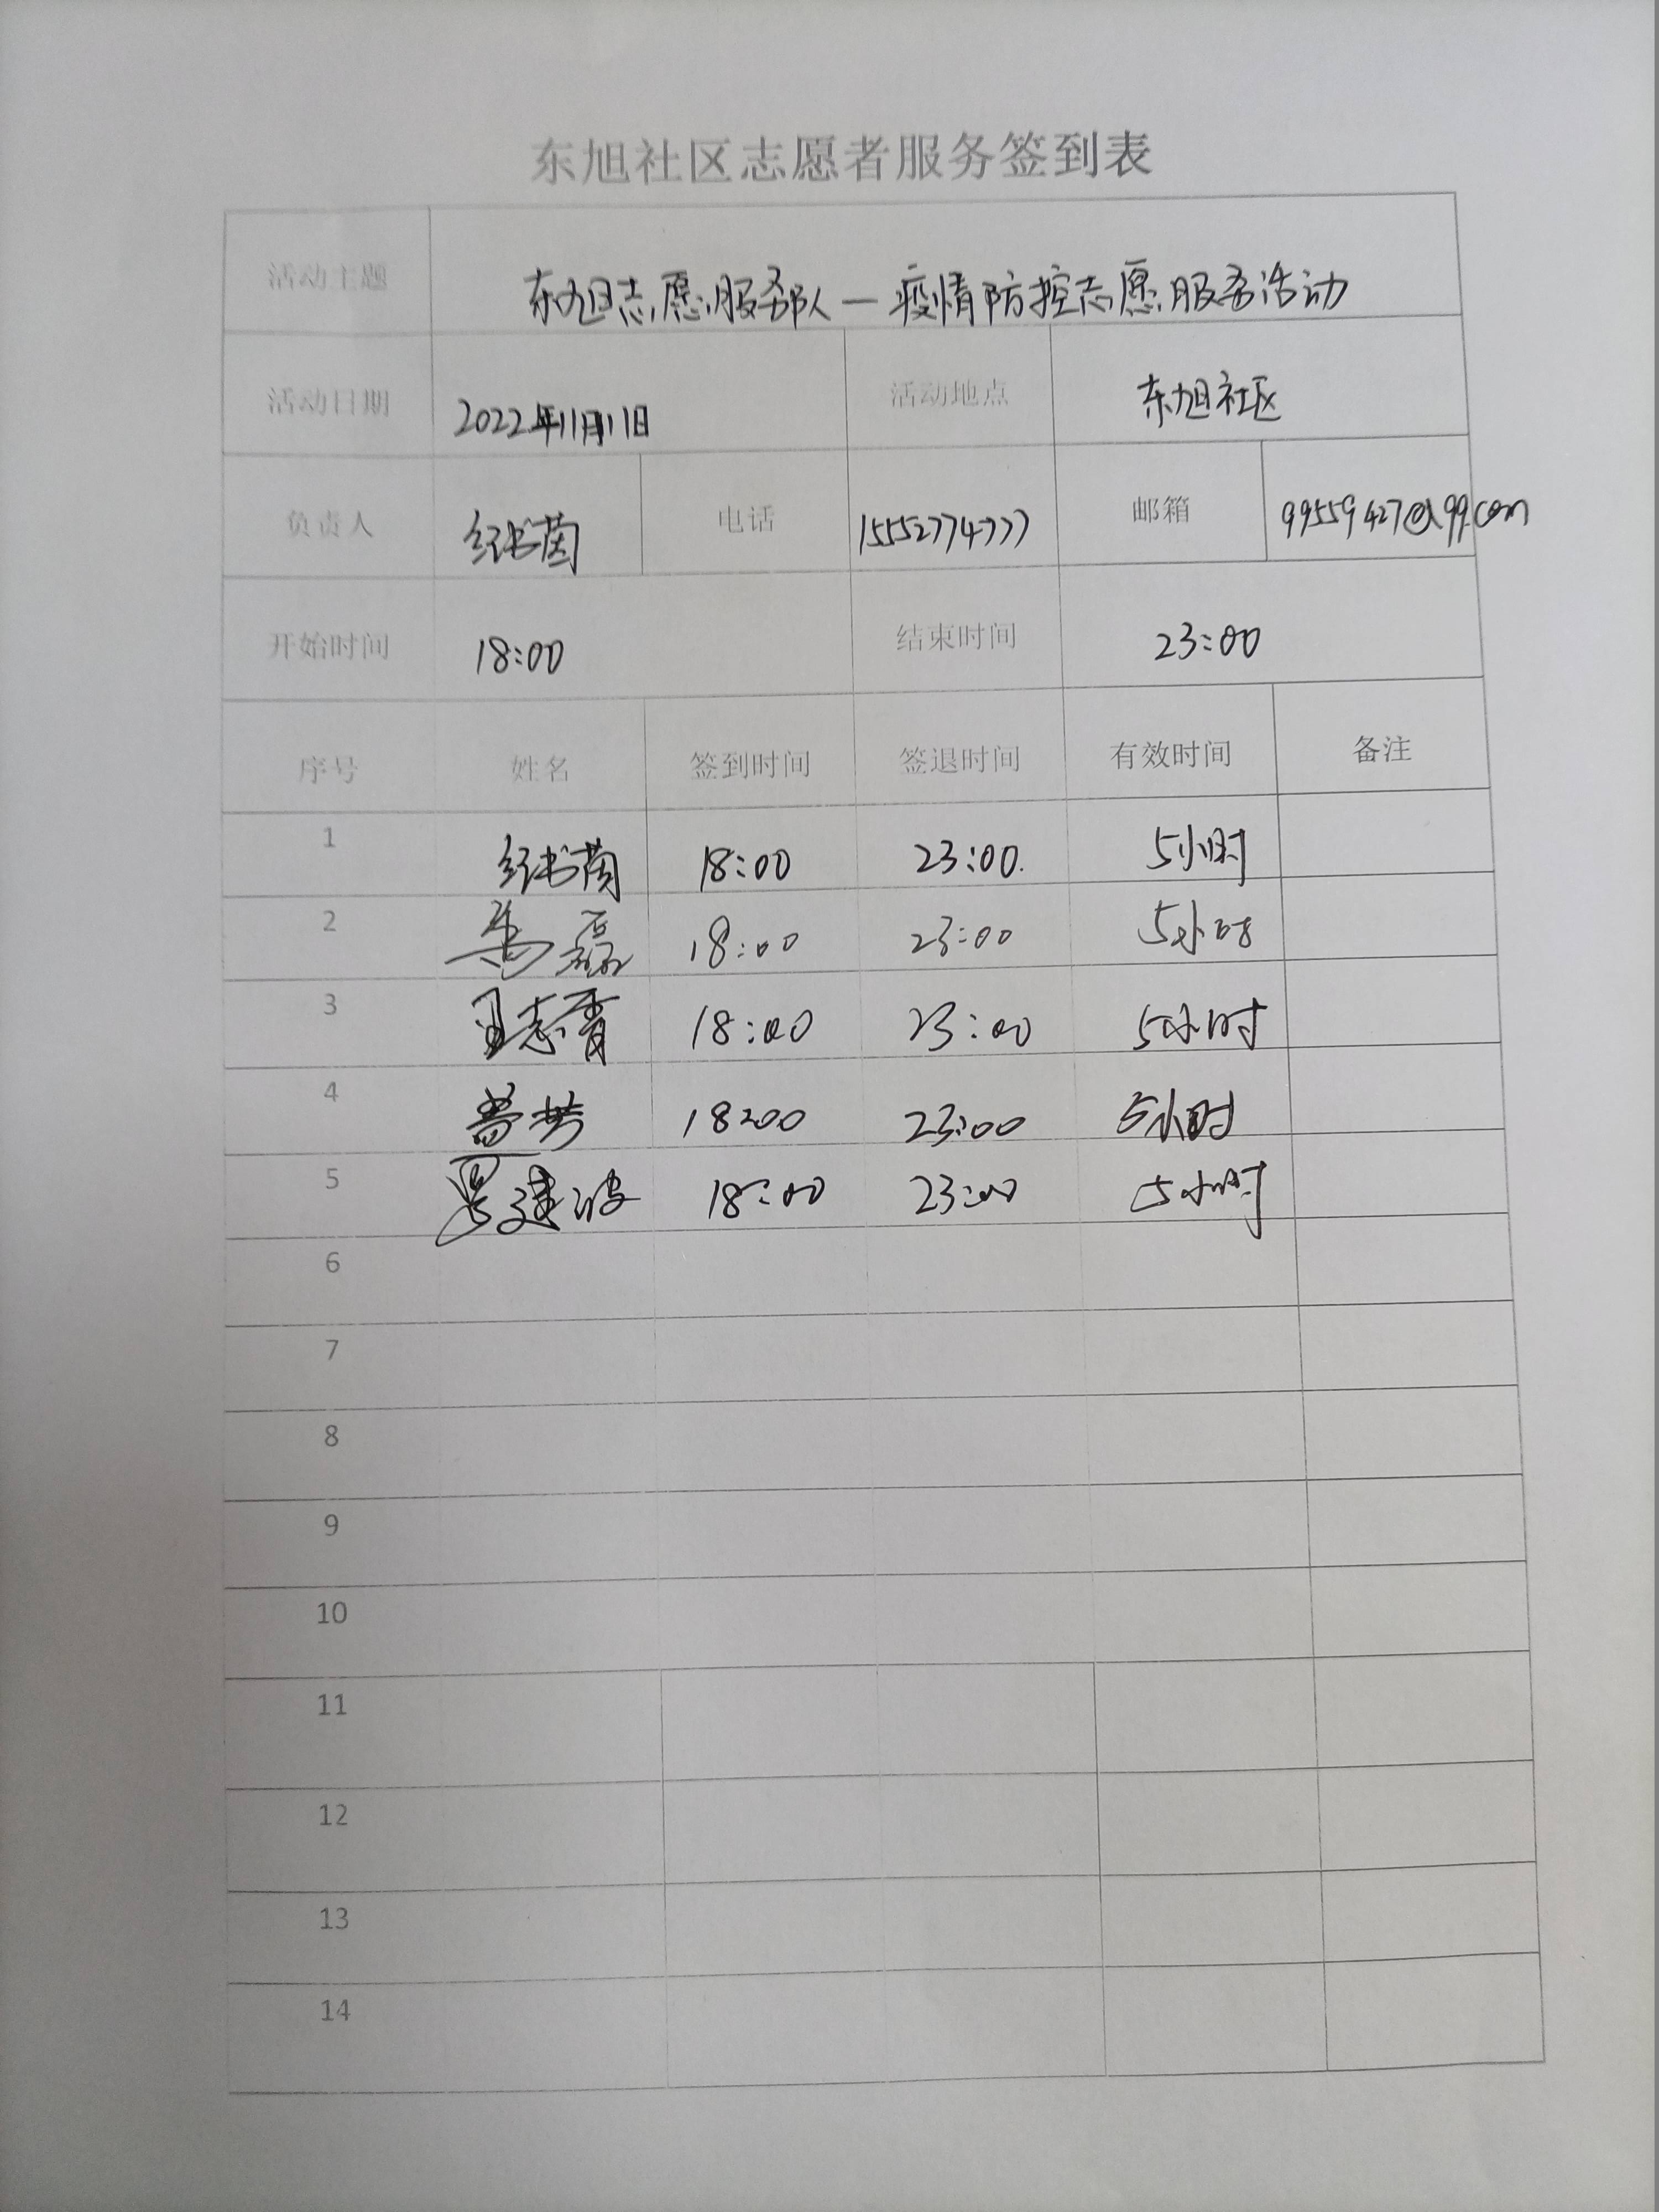 东旭社区志愿者服务签到表
活动主题 东旭志愿服务队—疫情防控志愿服务活动
活动日期 2022年11月11日 活动地点 东旭社区
负责人 纪书茵 电话 15552774777 邮箱 99559427@qq.com
开始时间 18:00 结束时间 23:00
序号 姓名 签到时间 签退时间 有效时间 备注
1 纪书茵 18:00 23:00 5小时
2 18:00 23:00 5小时
3 王志青 18:00 23:00 5小时
4 18:00 23:00 5小时
5 18:00 23:00 5小时
6
7
8
9
10
11
12
13
14